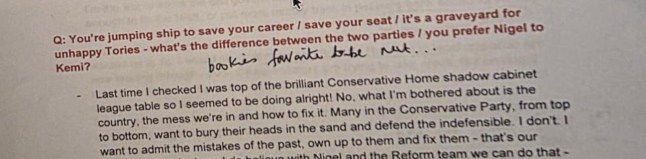 Q: You're jumping ship to save your career / save your seat / it's a graveyard for
unhappy Tories - what's the difference between the two parties / you prefer Nigel to
Kemi?
bookies favourite to be next...
- Last time I checked I was top of the brilliant Conservative Home shadow cabinet
league table so I seemed to be doing alright! No, what I'm bothered about is the
country, the mess we're in and how to fix it. Many in the Conservative Party, from top
to bottom, want to bury their heads in the sand and defend the indefensible. I don't. I
want to admit the mistakes of the past, own up to them and fix them - that's our
with Nigel and the Reform team we can do that -